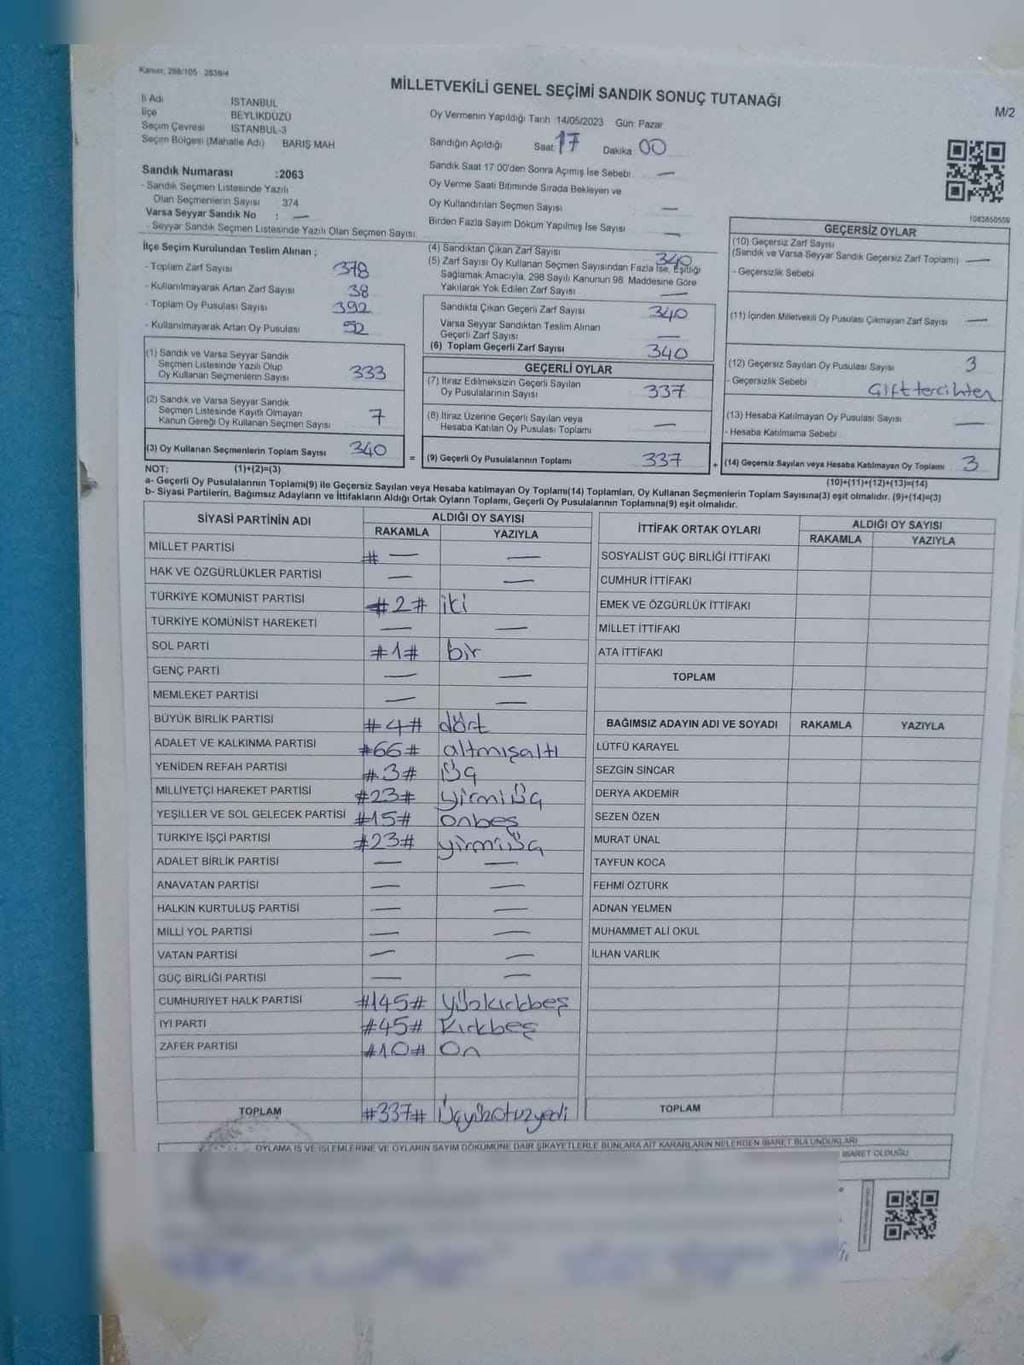 Kanun: 298/105 2839/4
MİLLETVEKİLİ GENEL SEÇİMİ SANDIK SONUÇ TUTANAĞI
M/2
İl Adı İSTANBUL
İlçe BEYLİKDÜZÜ
Seçim Çevresi İSTANBUL-3
Seçim Bölgesi (Mahalle Adı) BARIŞ MAH
Oy Vermenin Yapıldığı Tarih 14/05/2023 Gün: Pazar
Sandığın Açıldığı Saat: 17 Dakika 00
Sandık Saat 17:00'den Sonra Açılmış İse Sebebi —
Oy Verme Saati Bitiminde Sırada Bekleyen ve
Oy Kullandırılan Seçmen Sayısı —
Birden Fazla Sayım Döküm Yapılmış İse Sayısı —
Sandık Numarası :2063
- Sandık Seçmen Listesinde Yazılı
Olan Seçmenlerin Sayısı 374
Varsa Seyyar Sandık No : —
- Seyyar Sandık Seçmen Listesinde Yazılı Olan Seçmen Sayısı:
İlçe Seçim Kurulundan Teslim Alınan ;
- Toplam Zarf Sayısı 378
- Kullanılmayarak Artan Zarf Sayısı 38
- Toplam Oy Pusulası Sayısı 392
- Kullanılmayarak Artan Oy Pusulası 52
(1) Sandık ve Varsa Seyyar Sandık
Seçmen Listesinde Yazılı Olup
Oy Kullanan Seçmenlerin Sayısı 333
(2) Sandık ve Varsa Seyyar Sandık
Seçmen Listesinde Kayıtlı Olmayan
Kanun Gereği Oy Kullanan Seçmen Sayısı 7
(3) Oy Kullanan Seçmenlerin Toplam Sayısı 340 =
(4) Sandıktan Çıkan Zarf Sayısı 340
(5) Zarf Sayısı Oy Kullanan Seçmen Sayısından Fazla İse, Eşitliği
Sağlamak Amacıyla, 298 Sayılı Kanunun 98. Maddesine Göre
Yakılarak Yok Edilen Zarf Sayısı —
Sandıkta Çıkan Geçerli Zarf Sayısı 340
Varsa Seyyar Sandıktan Teslim Alınan
Geçerli Zarf Sayısı —
(6) Toplam Geçerli Zarf Sayısı 340
GEÇERLİ OYLAR
(7) İtiraz Edilmeksizin Geçerli Sayılan
Oy Pusulalarının Sayısı 337
(8) İtiraz Üzerine Geçerli Sayılan veya
Hesaba Katılan Oy Pusulası Toplamı —
(9) Geçerli Oy Pusulalarının Toplamı 337 +
GEÇERSİZ OYLAR
(10) Geçersiz Zarf Sayısı
(Sandık ve Varsa Seyyar Sandık Geçersiz Zarf Toplamı) —
- Geçersizlik Sebebi
(11) İçinden Milletvekili Oy Pusulası Çıkmayan Zarf Sayısı —
(12) Geçersiz Sayılan Oy Pusulası Sayısı 3
- Geçersizlik Sebebi Çift tercihten
(13) Hesaba Katılmayan Oy Pusulası Sayısı —
- Hesaba Katılmama Sebebi
(14) Geçersiz Sayılan veya Hesaba Katılmayan Oy Toplamı 3
NOT: (1)+(2)=(3)
(10)+(11)+(12)+(13)=(14)
a- Geçerli Oy Pusulalarının Toplamı(9) ile Geçersiz Sayılan veya Hesaba katılmayan Oy Toplamı(14) Toplamları, Oy Kullanan Seçmenlerin Toplam Sayısına(3) eşit olmalıdır. (9)+(14)=(3)
b- Siyasi Partilerin, Bağımsız Adayların ve İttifakların Aldığı Ortak Oyların Toplamı, Geçerli Oy Pusulalarının Toplamına(9) eşit olmalıdır.
SİYASİ PARTİNİN ADI ALDIĞI OY SAYISI
RAKAMLA YAZIYLA
MİLLET PARTİSİ # — —
HAK VE ÖZGÜRLÜKLER PARTİSİ — —
TÜRKİYE KOMÜNİST PARTİSİ #2# iki
TÜRKİYE KOMÜNİST HAREKETİ — —
SOL PARTİ #1# bir
GENÇ PARTİ — —
MEMLEKET PARTİSİ — —
BÜYÜK BİRLİK PARTİSİ #4# dört
ADALET VE KALKINMA PARTİSİ #66# altmışaltı
YENİDEN REFAH PARTİSİ #3# Üç
MİLLİYETÇİ HAREKET PARTİSİ #23# yirmiÜç
YEŞİLLER VE SOL GELECEK PARTİSİ #15# onbeş
TÜRKİYE İŞÇİ PARTİSİ #23# yirmiÜç
ADALET BİRLİK PARTİSİ — —
ANAVATAN PARTİSİ — —
HALKIN KURTULUŞ PARTİSİ — —
MİLLİ YOL PARTİSİ — —
VATAN PARTİSİ — —
GÜÇ BİRLİĞİ PARTİSİ — —
CUMHURİYET HALK PARTİSİ #145# yÜzkırkbeş
İYİ PARTİ #45# Kırkbeş
ZAFER PARTİSİ #10# On
TOPLAM #337# Üçyüzotuzyedi
İTTİFAK ORTAK OYLARI ALDIĞI OY SAYISI
RAKAMLA YAZIYLA
SOSYALİST GÜÇ BİRLİĞİ İTTİFAKI
CUMHUR İTTİFAKI
EMEK VE ÖZGÜRLÜK İTTİFAKI
MİLLET İTTİFAKI
ATA İTTİFAKI
TOPLAM
BAĞIMSIZ ADAYIN ADI VE SOYADI RAKAMLA YAZIYLA
LÜTFÜ KARAYEL
SEZGİN SİNCAR
DERYA AKDEMİR
SEZEN ÖZEN
MURAT ÜNAL
TAYFUN KOCA
FEHMİ ÖZTÜRK
ADNAN YELMEN
MUHAMMET ALİ OKUL
İLHAN VARLIK
TOPLAM
OYLAMA İŞ VE İŞLEMLERİNE VE OYLARIN SAYIM DÖKÜMÜNE DAİR ŞİKAYETLERLE BUNLARA AİT KARARLARIN NELERDEN İBARET BULUNDUKLARI
İBARET OLDUĞU